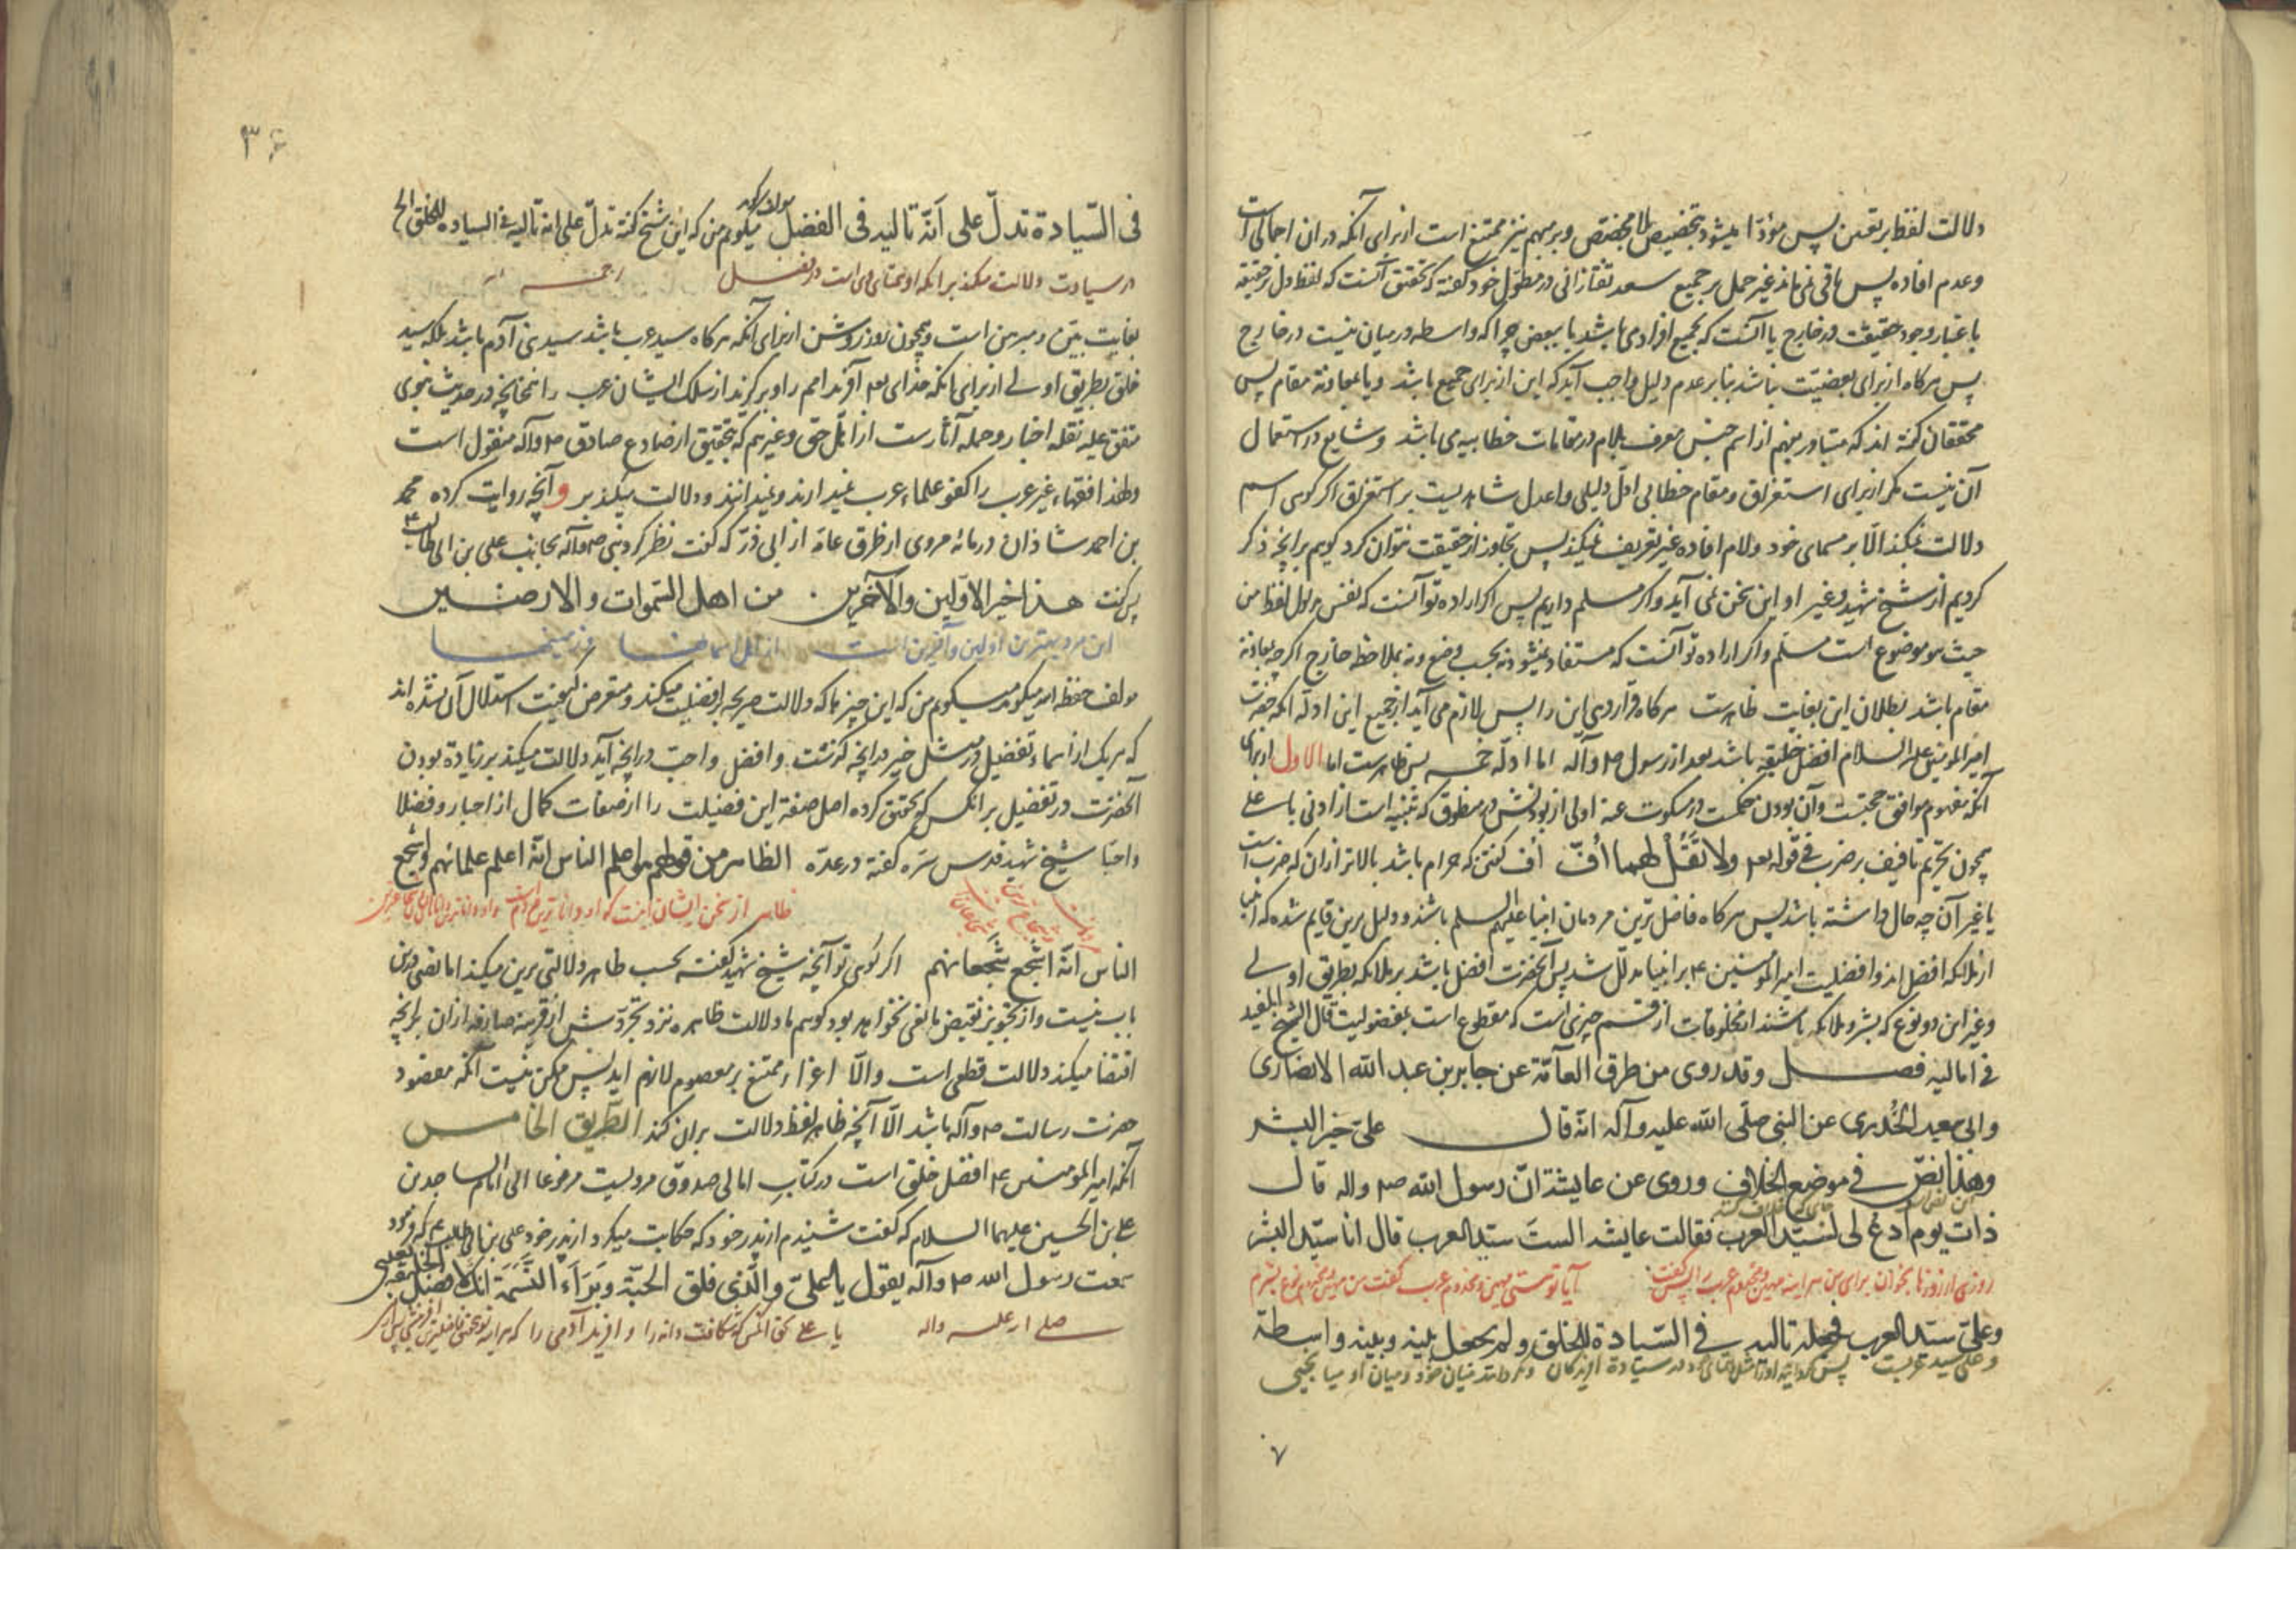 دلالت لفظ بر تعین پس مؤدّا میشود بتخصیص بلا مخصّص و بر مبهم نیز ممتنع است از برای آنکه در ان اجمالی است
و عدم افاده پس باقی نمی ماند غیر حمل بر جمیع سعد تفتازانی در مطوّل خود گفته که تحقیق آنست که لفظ دل بر حقیقة
باعتبار وجود حقیقت در خارج یا آنست که بجمیع افراد می باشد یا ببعض چرا که واسطه در میان نیست در خارج
پس هرکاه از برای بعضیّت نباشد بنا بر عدم دلیل واجب آید که این از برای جمیع باشد و یا بمعاونة مقام پس
محققان گفته اند که متبادر بفهم از اسم جنس معرف بلام در مقامات خطابیه می باشد و شایع در استعمال
آن نیست مگر از برای استغراق و مقام خطابی ادلّ دلیلی و اعدل شاهدیست بر استغراق اکر کوی اسم
دلالت نمیکند الّا بر مسمای خود و لام افاده غیر تعریف نمیکند پس تجاوز از حقیقت نتوان کرد کویم بر انچه ذکر
کردیم از شیخ شهید و غیر او این سخن نمی آید و اکر مسلم داریم پس اکر اراده تو آنست که نفس مدلول لفظ من
حیث هو موضوع است مسلّم و اکر اراده تو آنست که مستفاد نمیشود نه بحسب وضع و نه بملاحظه خارج اکرچه بمعاونة
مقام باشد بطلان این بغایت ظاهرست هرکاه قرار دهی این را پس لازم می آید از جمیع این ادلّه آنکه حضرت
امیر المؤمنین علیه السلام افضل خلیقه باشد بعد از رسول ص و آله اما ادلّه خمسه پس ظاهرست اما الاول از برای
آنکه مفهوم موافق حجتست و آن بودن حکمت در مسکوت عنه اولی از بودنش در منطوق که تنبیه است از ادنی با علی
همچون تحریم تافیف بر ضرب فی قوله تعه ولا تَقُلْ لهما أُفّ اُف کفتن که حرام باشد بالاتر از ان که ضرب است
یا غیر آن چه حال داشته باشد پس هرکاه فاضل ترین مردمان انبیا علیهم السلم باشند و دلیل برین قایم شده که انبیا
از ملائکه افضل اند و افضلیت امیر المؤمنین ع بر انبیا مدلّل شد پس آنحضرت افضل باشد بر ملائکه بطریق اولی
و غیر این دو نوع که بشر و ملائکه باشند از مخلوقات از قسم چیزی است که مقطوع است بمفضولیت قال الشیخ المفید
فی امالیه فصل وقد روی من طرق العامّة عن جابر بن عبد الله الانصاری
وابی سعید الخُدری عن النبی صلّی الله علیه وآله انّه قال علیّ خیر البشر
وهذا نصّ فی موضع الخلاف وروی عن عایشة انّ رسول الله ص واله قال
ذات یوم ادع لی لسیّد العرب فقالت عایشة الستَ سیّد العرب قال انا سیّد البشر
روزی از روزها بخوان برای من هر اینه مهین و مخدوم عرب را پس کفت آیا تو نیستی مهین و مخدوم عرب کفت من مهین و مخدوم نوع بشرم
وعلیّ سیّد العرب فجعله تالیه فی السّیادة للخلق ولم یجعل بینه وبینه واسطة
و علی سید عربست
۷
۳۶
فی السّیادة تدلّ علی أنّه تالیه فی الفضل میکویم من که این شیخ کفته تدلّ علی انه تالیه فی السیاده للخلق الخ
در سیادت دلالت میکند بر آنکه او همتای وی است در فضل
بغایت بیّن و مبرهن است و همچون روز روشن از برای آنکه هرکاه سید عرب باشد سید بنی آدم باشد بلکه سید
خلق بطریق اولی از برای انکه خدای تعه آفرید امم را و برکزید از سلک ایشان عرب را چنانچه در حدیث نبوی
متفق علیه نقله اخبار و حمله آثارست از اهل حق و غیرهم که بتحقیق از صادع صادق ص و آله منقول است
و لهذا فقهاء غیر عرب را کفو علماء عرب نمیدارند و نمیدانند و دلالت میکند بر و آنچه روایت کرده محمد
بن احمد شاذان در مائه مروی از طرق عامّه از ابی ذرّ که کفت نظر کرد نبی ص و آله بجانب علی بن ابی طالب ع
پس کفت هذا خیر الاوّلین والآخرین من اهل السّموات والارضین
این مرد بهترین اولین و آخرین است از اهل اسمانها و زمینها
مولف حفظه الله میکوید میکویم من که این چیزها که دلالت صریحه بر افضلیت میکند و متعرض کیفیت استدلال آن نشده اند
که هریک از اسماء تفضیل در مثل خیر در انچه کذشت و افضل و احبّ در انچه آید دلالت میکند بر زیادة بودن
آنحضرت در تفضیل بر انکس که تحقق کرده اصل صفة این فضیلت را از صفات کمال از اخیار و فضلا
و احبّا شیخ شهید قدس سرّه کفته در عدّه الظاهر من قولهم اعلم الناس انّه اعلم علمائهم واشجع
ظاهر از سخن ایشان اینست که او داناترین مردم است
الناس انّه اشجع شجعانهم اکر کوی تو آنچه شیخ شهید کفته بحسب ظاهر دلالتی برین میکند اما نصی درین
باب نیست و از تجویز نقیض مانعی نخواهد بود کویم ما دلالت ظاهره نزد تجرّدش از قرینه صارفه از ان بر انچه
اقتضا میکند دلالت قطعی است والّا اغراء ممتنع بر معصوم لازم اید پس ممکن نیست آنکه مقصود
حضرت رسالت ص و آله باشد الّا آنچه ظاهر لفظ دلالت بران کند الطّریق الخامس
آنکه امیر المومنین ع افضل خلق است در کتاب امالی صدوق مرویست مرفوعا الی امام الساجدین
علی بن الحسین علیهما السلام که کفت شنیدم از پدر خود که حکایت میکرد از پدر خود علی بن ابی طالب ع که فرمود
سمعت رسول الله ص و آله یقول یا علیّ والّذی فلق الحبّة وبَرَاَء النَّسَمَة انّک لافضل الخلیقة بعدی
صلی الله علیه واله یا علی بحق آنکس که شکافت دانه را و افرید آدمی را که هر اینه تو